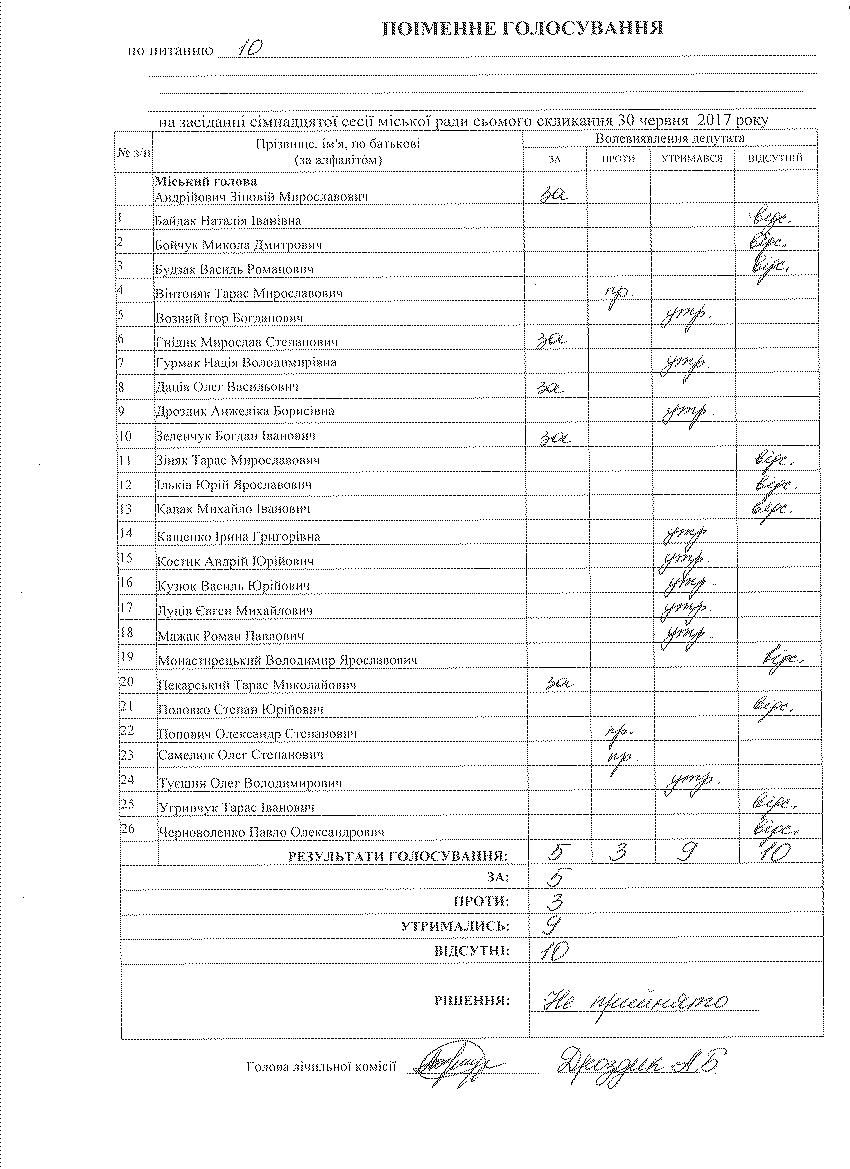 ПОІМЕННЕ ГОЛОСУВАННЯ
по питанню 10
на засіданні сімнадцятої сесії міської ради сьомого скликання 30 червня 2017 року
№ з/п Прізвище, ім'я, по батькові (за алфавітом) Волевиявлення депутата
ЗА ПРОТИ УТРИМАВСЯ ВІДСУТНІЙ
Міський голова
Андрійович Зіновій Мирославович за
1 Байдак Наталія Іванівна відс.
2 Бойчук Микола Дмитрович відс.
3 Будзак Василь Романович відс.
4 Вінтоняк Тарас Мирославович пр.
5 Возний Ігор Богданович утр.
6 Гнідик Мирослав Степанович за
7 Гурмак Надія Володимирівна утр.
8 Даців Олег Васильович за
9 Дроздик Анжеліка Борисівна утр.
10 Зеленчук Богдан Іванович за
11 Зіняк Тарас Мирославович відс.
12 Ільків Юрій Ярославович відс.
13 Кавак Михайло Іванович відс.
14 Кащенко Ірина Григорівна утр
15 Костик Андрій Юрійович утр.
16 Кузюк Василь Юрійович утр.
17 Луців Євген Михайлович утр.
18 Мажак Роман Павлович утр.
19 Монастирецький Володимир Ярославович відс.
20 Пекарський Тарас Миколайович за
21 Половко Степан Юрійович відс.
22 Попович Олександр Степанович пр.
23 Самелюк Олег Степанович пр.
24 Туєшин Олег Володимирович утр.
25 Угринчук Тарас Іванович відс.
26 Черноволенко Павло Олександрович відс.
РЕЗУЛЬТАТИ ГОЛОСУВАННЯ: 5 3 9 10
ЗА: 5
ПРОТИ: 3
УТРИМАЛИСЬ: 9
ВІДСУТНІ: 10
РІШЕННЯ: Не прийнято
Голова лічильної комісії Дроздик А Б